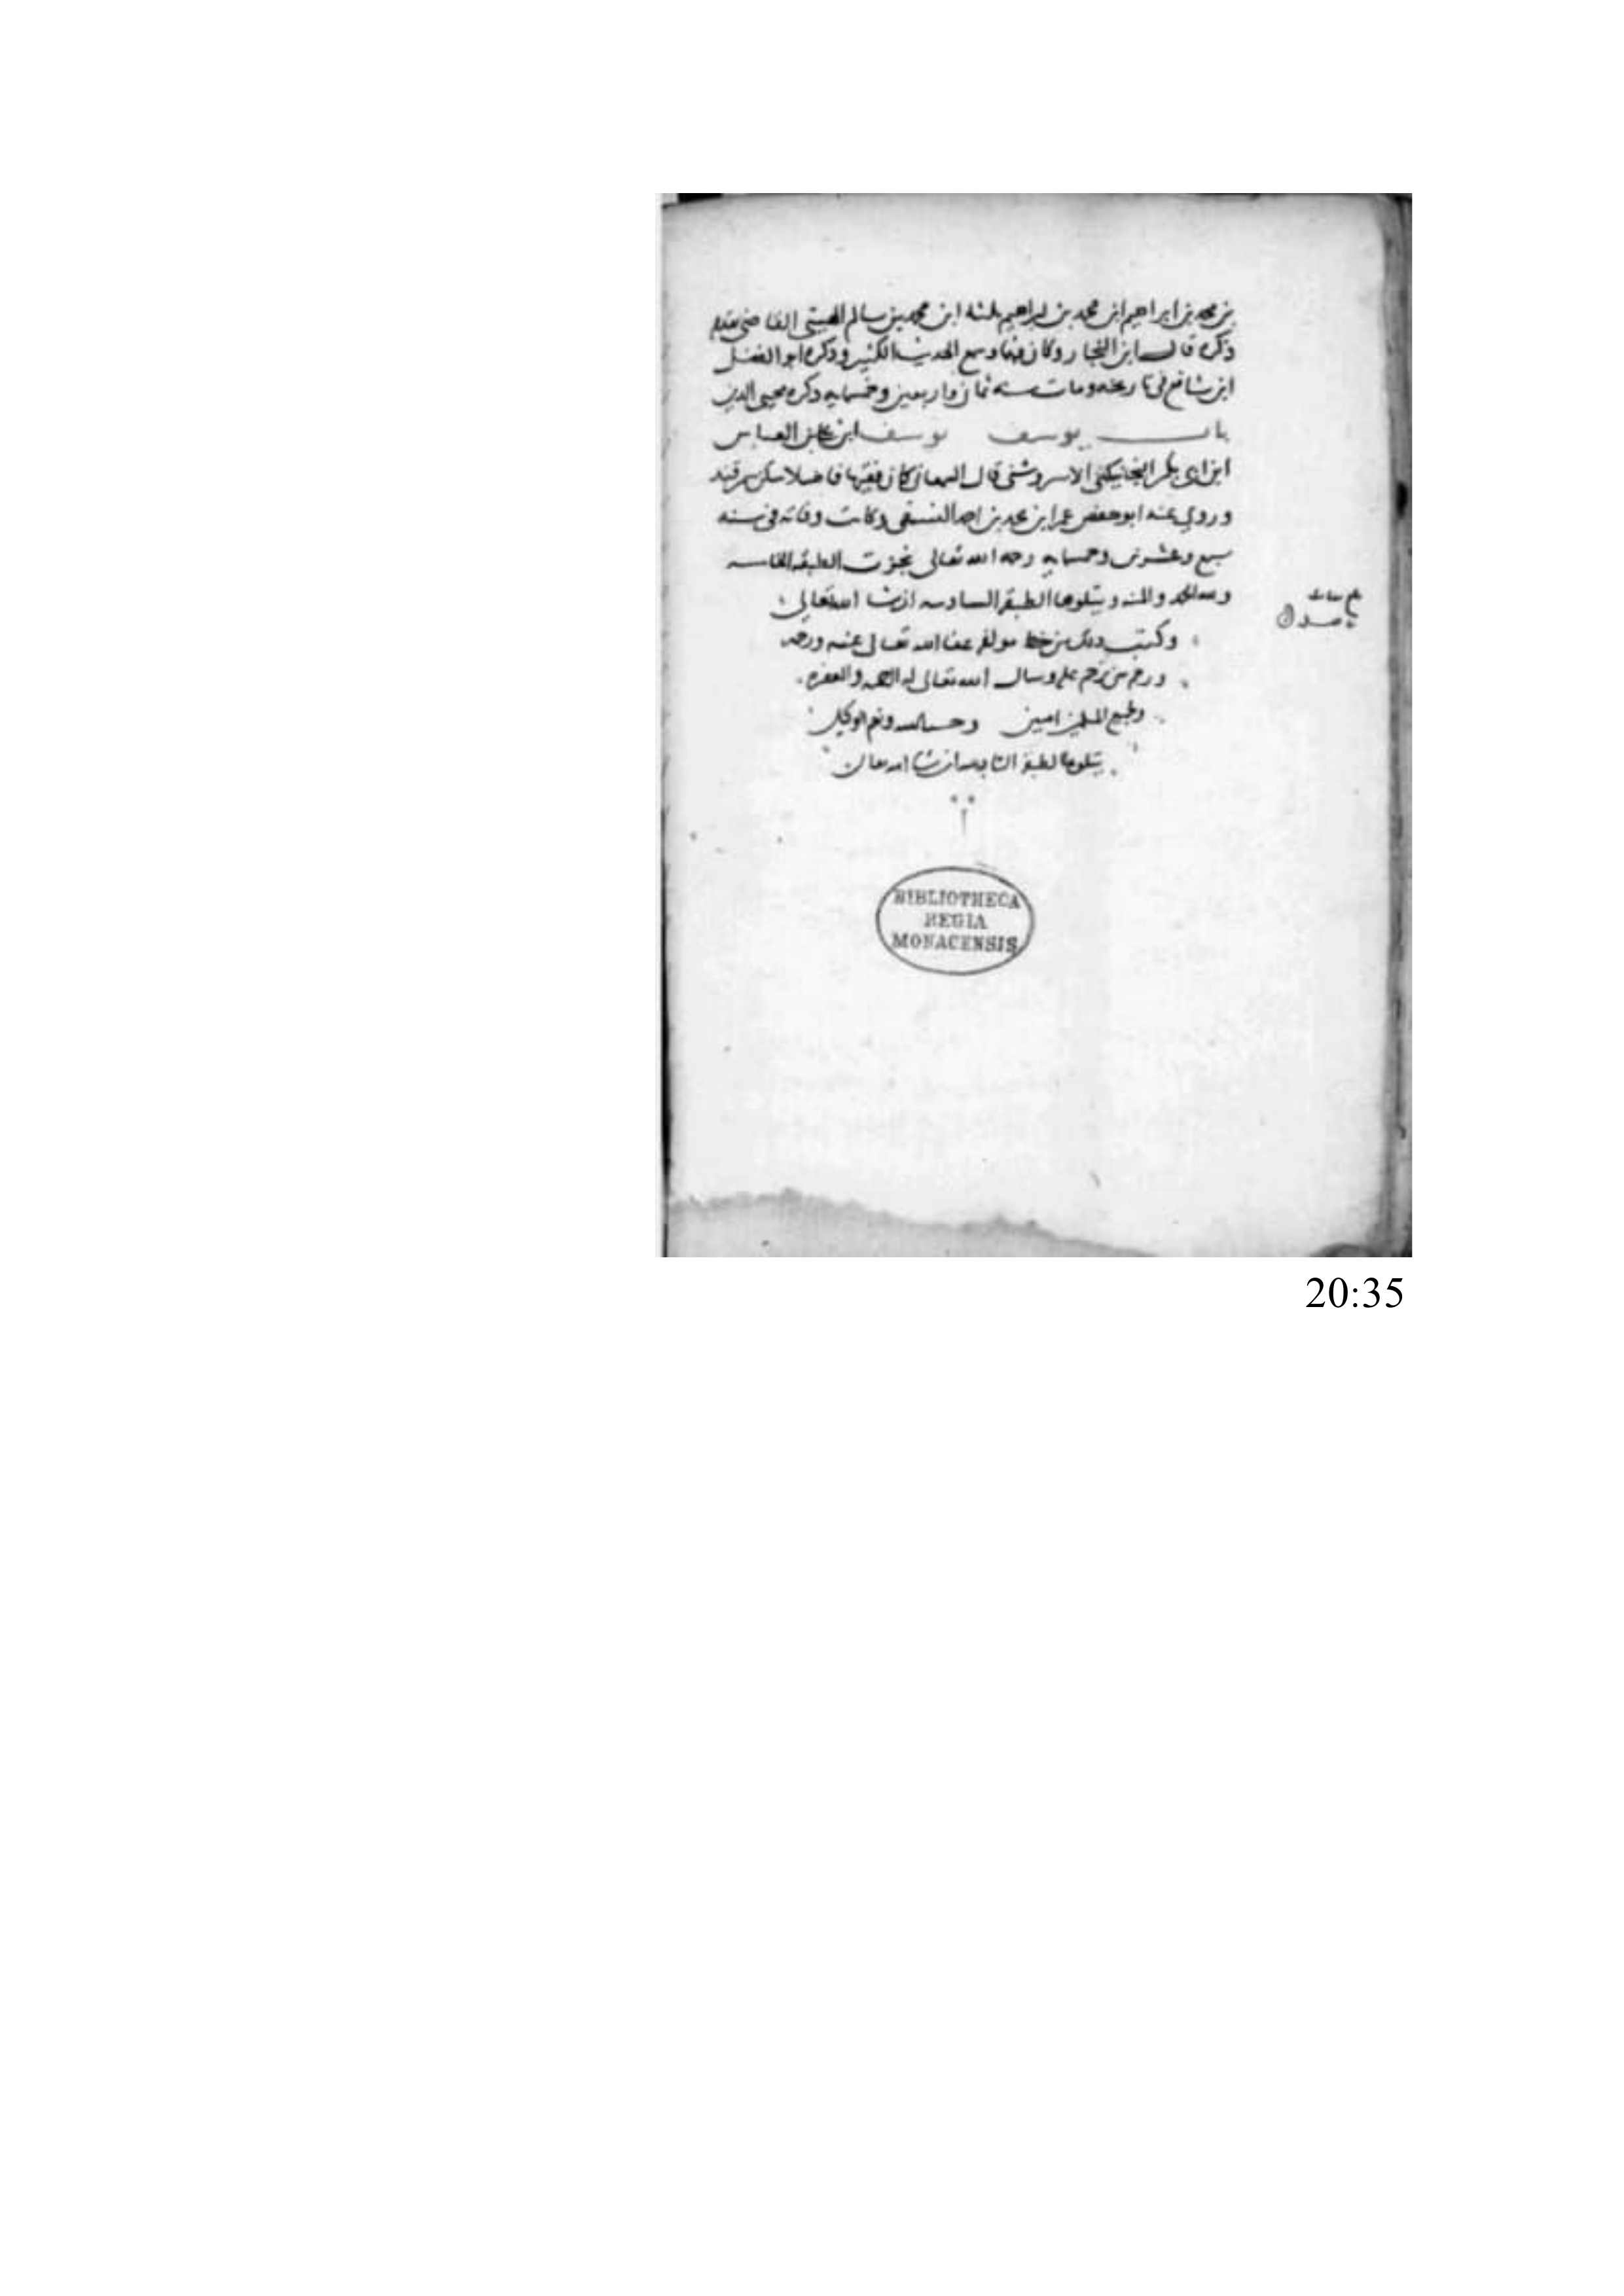 بن محمد بن ابراهيم ابن محمد بن ابراهيم ثلثه ابن محمد بن سالم الهيتى القاضى تقدم
ذكره قال ابن النجار وكان فقيها وسمع الحديث الكثير وذكره ابو الفضل
ابن شافع فى تاريخه ومات سنه ثمان واربعين وخمسمايه ذكره محيى الدين
باب يوسف يوسف ابن على بن العباس
ابن ابى بكر النجانيكثى الاسروشنى قال السمعانى كان فقيها فاضلا سكن سمرقند
وروى عنه ابو حفص عمر ابن محمد بن احمد النسفى وكانت وفاته فى سنه
سبع وعشرين وخمسمايه رحمه الله تعالى نجزت الطبقه الخامسه
ولله الحمد والمنه ويتلوها الطبقه السادسه ان شا الله تعالى
وكتب ذلك من خط مولفه عفا الله تعالى عنه ورحمه
ورحم من ترحم عليه وسال الله تعالى له الرحمه والمغفره
ولجميع المسلمين امين وحسبنا الله ونعم الوكيل
يتلوها الطبقه ان شا الله تعالى
BIBLIOTHECA
REGIA
MONACENSIS
20:35